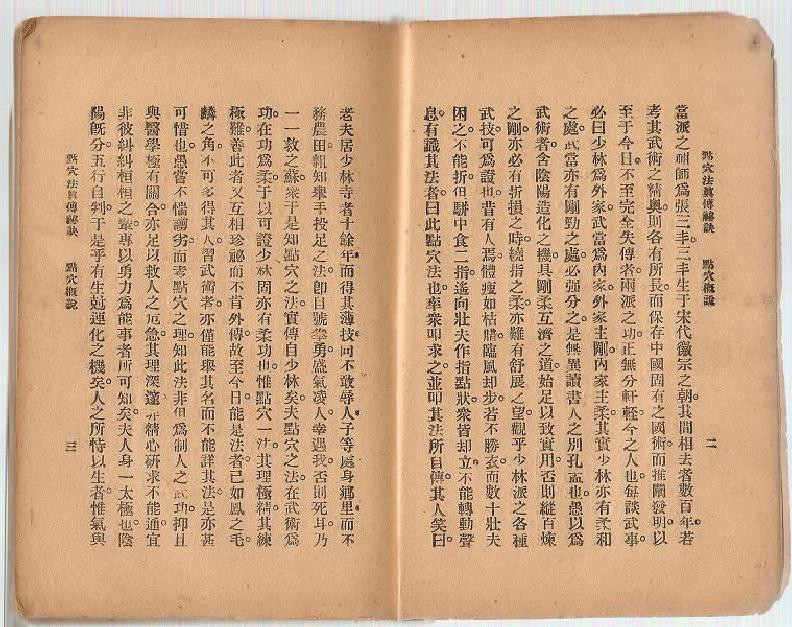 點穴法眞傳祕訣 點穴概說 二
當派之祖師爲張三丰。三丰生于宋代徽宗之朝。其間相去者數百年。若
考其武術之精奧。則各有所長。而保存中國固有之國術。而推闡發明。以
至于今日。不至完全失傳者。兩派之功。正無分軒輊。今之人也。每談武事。
必曰少林爲外家。武當爲內家。外家主剛。內家主柔。其實少林亦有柔和
之處。武當亦有剛勁之處。必强分之。是無異讀書人之別孔孟也。愚以爲
武術者。含陰陽造化之機。具剛柔互濟之道。始足以致實用。否則縱百煉
之剛。亦必有折損之時。繞指之柔。亦難有舒展之望。觀乎少林派之各種
武技。可爲證也。昔有人焉。體瘦如枯腊。臨風却步。若不勝衣。而數十壯夫
困之。不能折。但駢中食二指。遙向壯夫作指點狀。衆皆却立。不能轉動聲
息。有識其法者曰。此點穴法也。率衆叩求之。並叩其法所自傳。其人笑曰。
老夫居少林寺者十餘年。而得其薄技。固不敢辱人。子等處身鄉里。而不
務農田。粗知舉手投足之法。卽自號拳勇。盛氣凌人。幸遇我。否則死耳。乃
一一救之蘇。衆于是知點穴之法。實傳自少林矣。夫點穴之法。在武術爲
功。在功爲柔。于以可證少林固亦有柔功也。惟點穴一法。其理極精。其練
極難。善此者又互相珍祕。而不肯外傳。故至今日。能是法者。已如鳳之毛
麟之角。不可多得。其人習武術者。亦僅能舉其名。而不能詳其法。是亦甚
可惜也。愚嘗不惴譾劣。而考點穴之理。知此法非但爲制人之武功。抑且
與醫學極有關合。亦足以救人之危急。其理深邃。非精心研求不能通。宜
非彼糾糾桓桓之輩。專以勇力爲能事者所可知矣。夫人身一太極也。陰
陽旣分。五行自判。于是乎有生尅運化之機矣。人之所恃以生者。惟氣與
點穴法眞傳祕訣 點穴概說 三